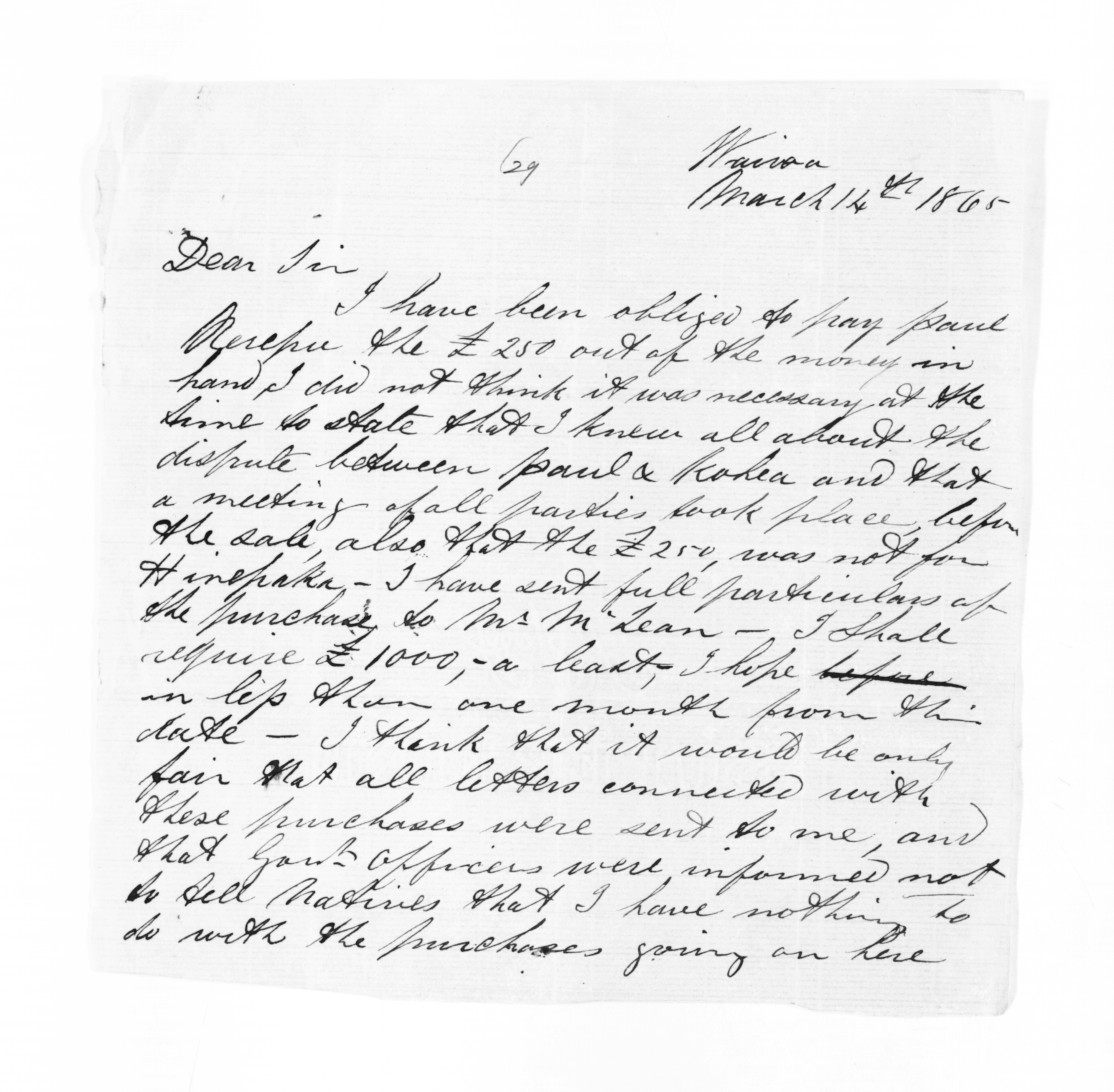 (29
Wairoa
March 14th 1865
Dear Sir,
I have been obliged to pay paul
Rerepu the £250 out of the money in
hand, I did not think it was necessary at the
time to state that I knew all about the
dispute between paul & Kohea and that
a meeting of all parties took place, before
the sale, also that the £250, was not for
Hinepaka - I have sent full particulars of
the purchase to Mr McLean - I shall
require £1000,- a least,- I hope before
in less than one month from this
date - I think that it would be only
fair that all letters connected with
these purchases were sent to me, and
that Govt officers were informed not
to tell Natives that I have nothing to
do with the purchases going on here